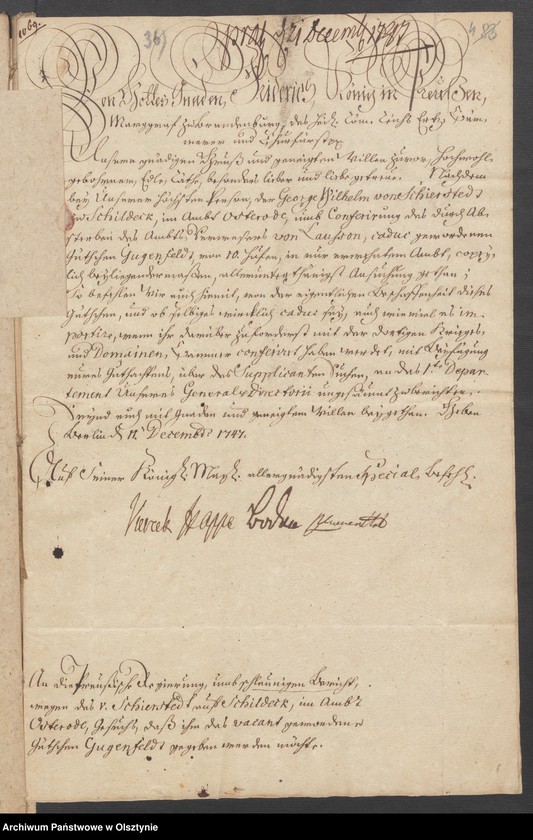 1069.
36)
präs. d. 21 Decemb. 1747
Von Gottes Gnaden, Friderich, König in Preußen,
Marggraf zu Brandenburg, des Heil. Röm. Reichs Ertz-Cäm-
merer und Churfürst p.
Unsern gnädigen Gruß und geneigten Willen zuvor, Hochwohl-
gebohrne, Edle, Räthe, besonders liebe und liebe getreue. Nachdem
bey Unserer höchsten Person, der George Wilhelm von Schierstedt
zu Schildeck, im Ambt Osterode, umb Conferirung des durch Ab-
sterben des Ambts-Verwesers von Laußon, caduc gewordenen
Gütchen Gugenfeldt, von 10. Huben, in nur erwehntem Ambt, copey-
lich beyliegendermaßen, allerunterthänigst Ansuchung gethan;
So befehlen Wir euch hiemit, von der eigentlichen Beschaffenheit dieses
Gütchen, und ob selbiges würcklich caduc sey, auch wie viel es im-
portire, wenn ihr darüber zuforderst mit der dortigen Krieges-
und Domainen-Cammer conferirt haben werdet, mit Beyfügung
eures Gutachtens, über des Supplicanten Suchen, an das 1ste Depar-
tement Unseres General-Directorii ungesäumt zu berichten.
Seynd euch mit Gnaden und geneigtem Willen beygethan. Geben
Berlin d. 11 Decembr. 1747.
Auf Seiner Königl. Mayt. allergnädigsten Special-Befehl.
Viereck Happe Boden Blumenthal
An die Preußische Regierung, umb schleunigen Bericht,
wegen des v. Schierstedt auf Schildeck, im Ambt
Osterode, Gesuch, daß ihm das vacant gewordene
Gütchen Gugenfeldt gegeben werden möchte.
Archiwum Państwowe w Olsztynie